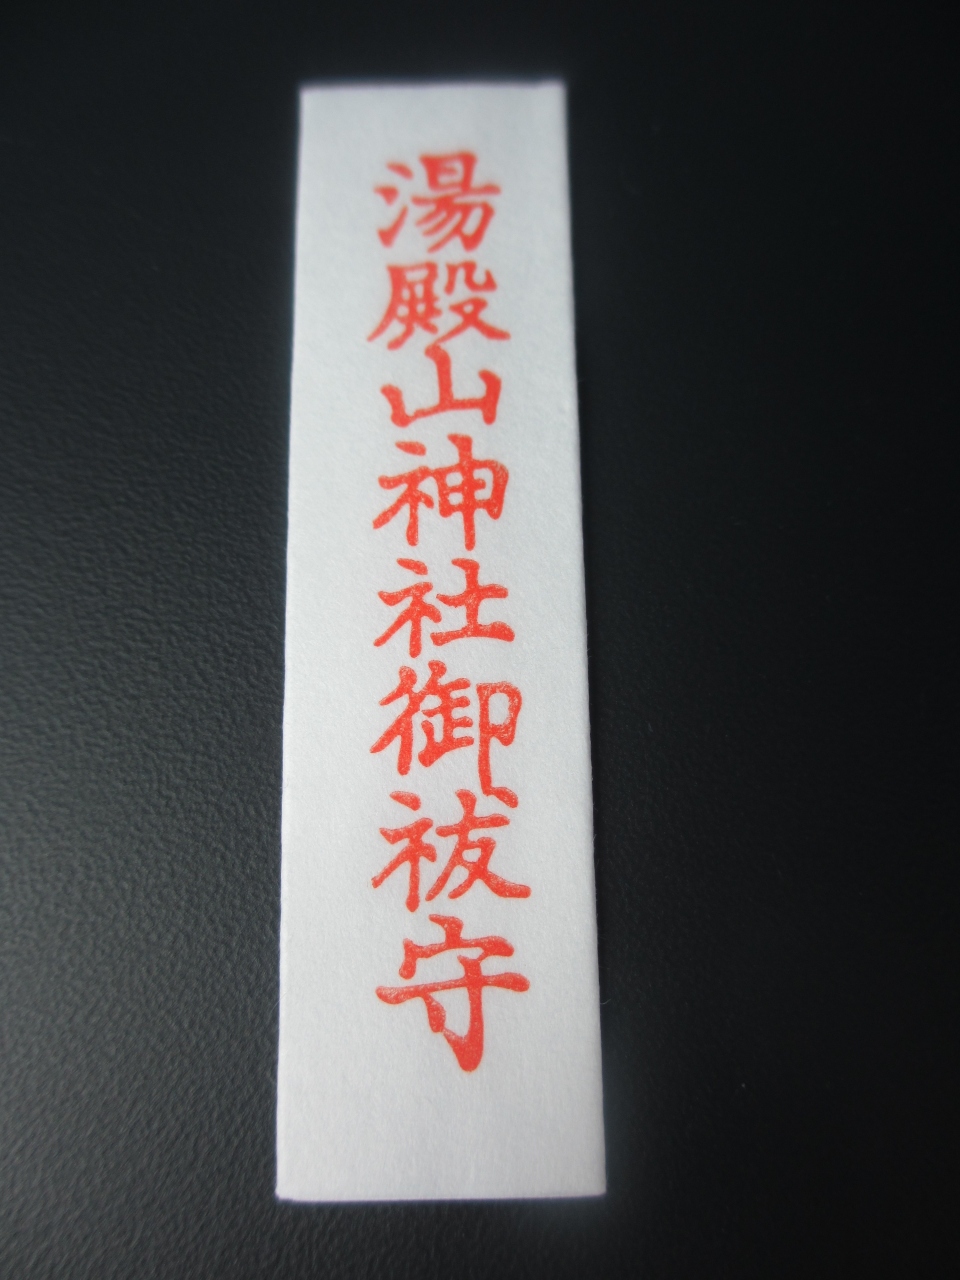 湯殿山神社御祓守